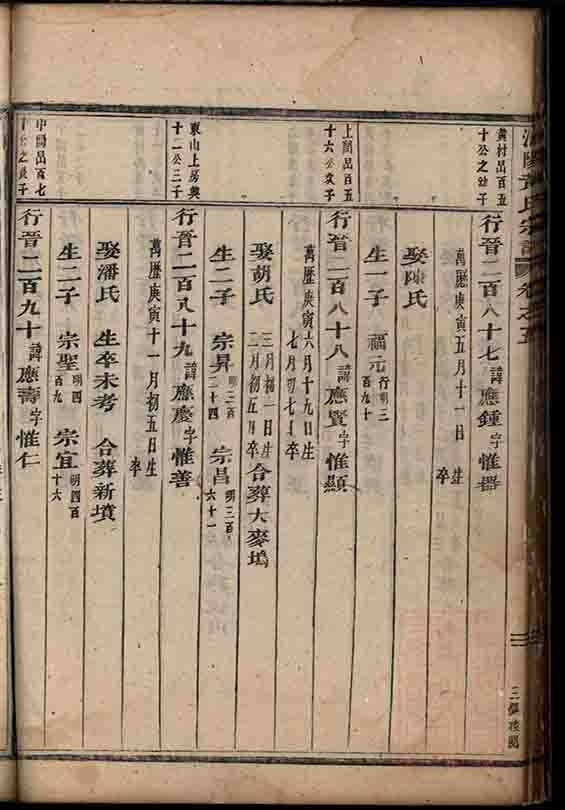 黃氏宗譜 卷之五
黃村呂百五
十公之幼子
行晉二百八十七諱應鍾字惟器
萬歷庚寅五月十一日生
卒
娶陳氏
生一子 福元行明三百九十
上閣呂百五
十六公次子
行晉二百八十八諱應賢字惟顯
萬歷庚寅六月十九日生
七月初七日卒
娶胡氏 三月初一日生
二月初五日卒 合葬大麥塢
生二子 宗昇明三百二十四 宗昌明三百六十一
東山上房奐
十二公三子
行晉二百八十九諱應慶字惟善
萬歷庚寅十一月初五日生
卒
娶潘氏 生卒未考 合葬新墳
生二子 宗聖明四百九 宗宜明四百十六
中陽呂百七
十公之幼子
行晉二百九十諱應壽字惟仁